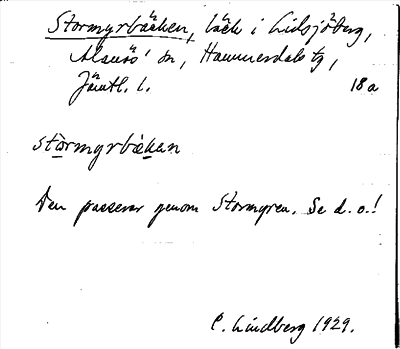 Stormyrbäcken, bäck i Lidsjöberg,
Alanäs sn, Hammerdals tg,
Jämtl. l. 18a
stòrmyrbä̀kan
Den passerar genom Stormyren. Se d. o.!
C. Lindberg 1929.